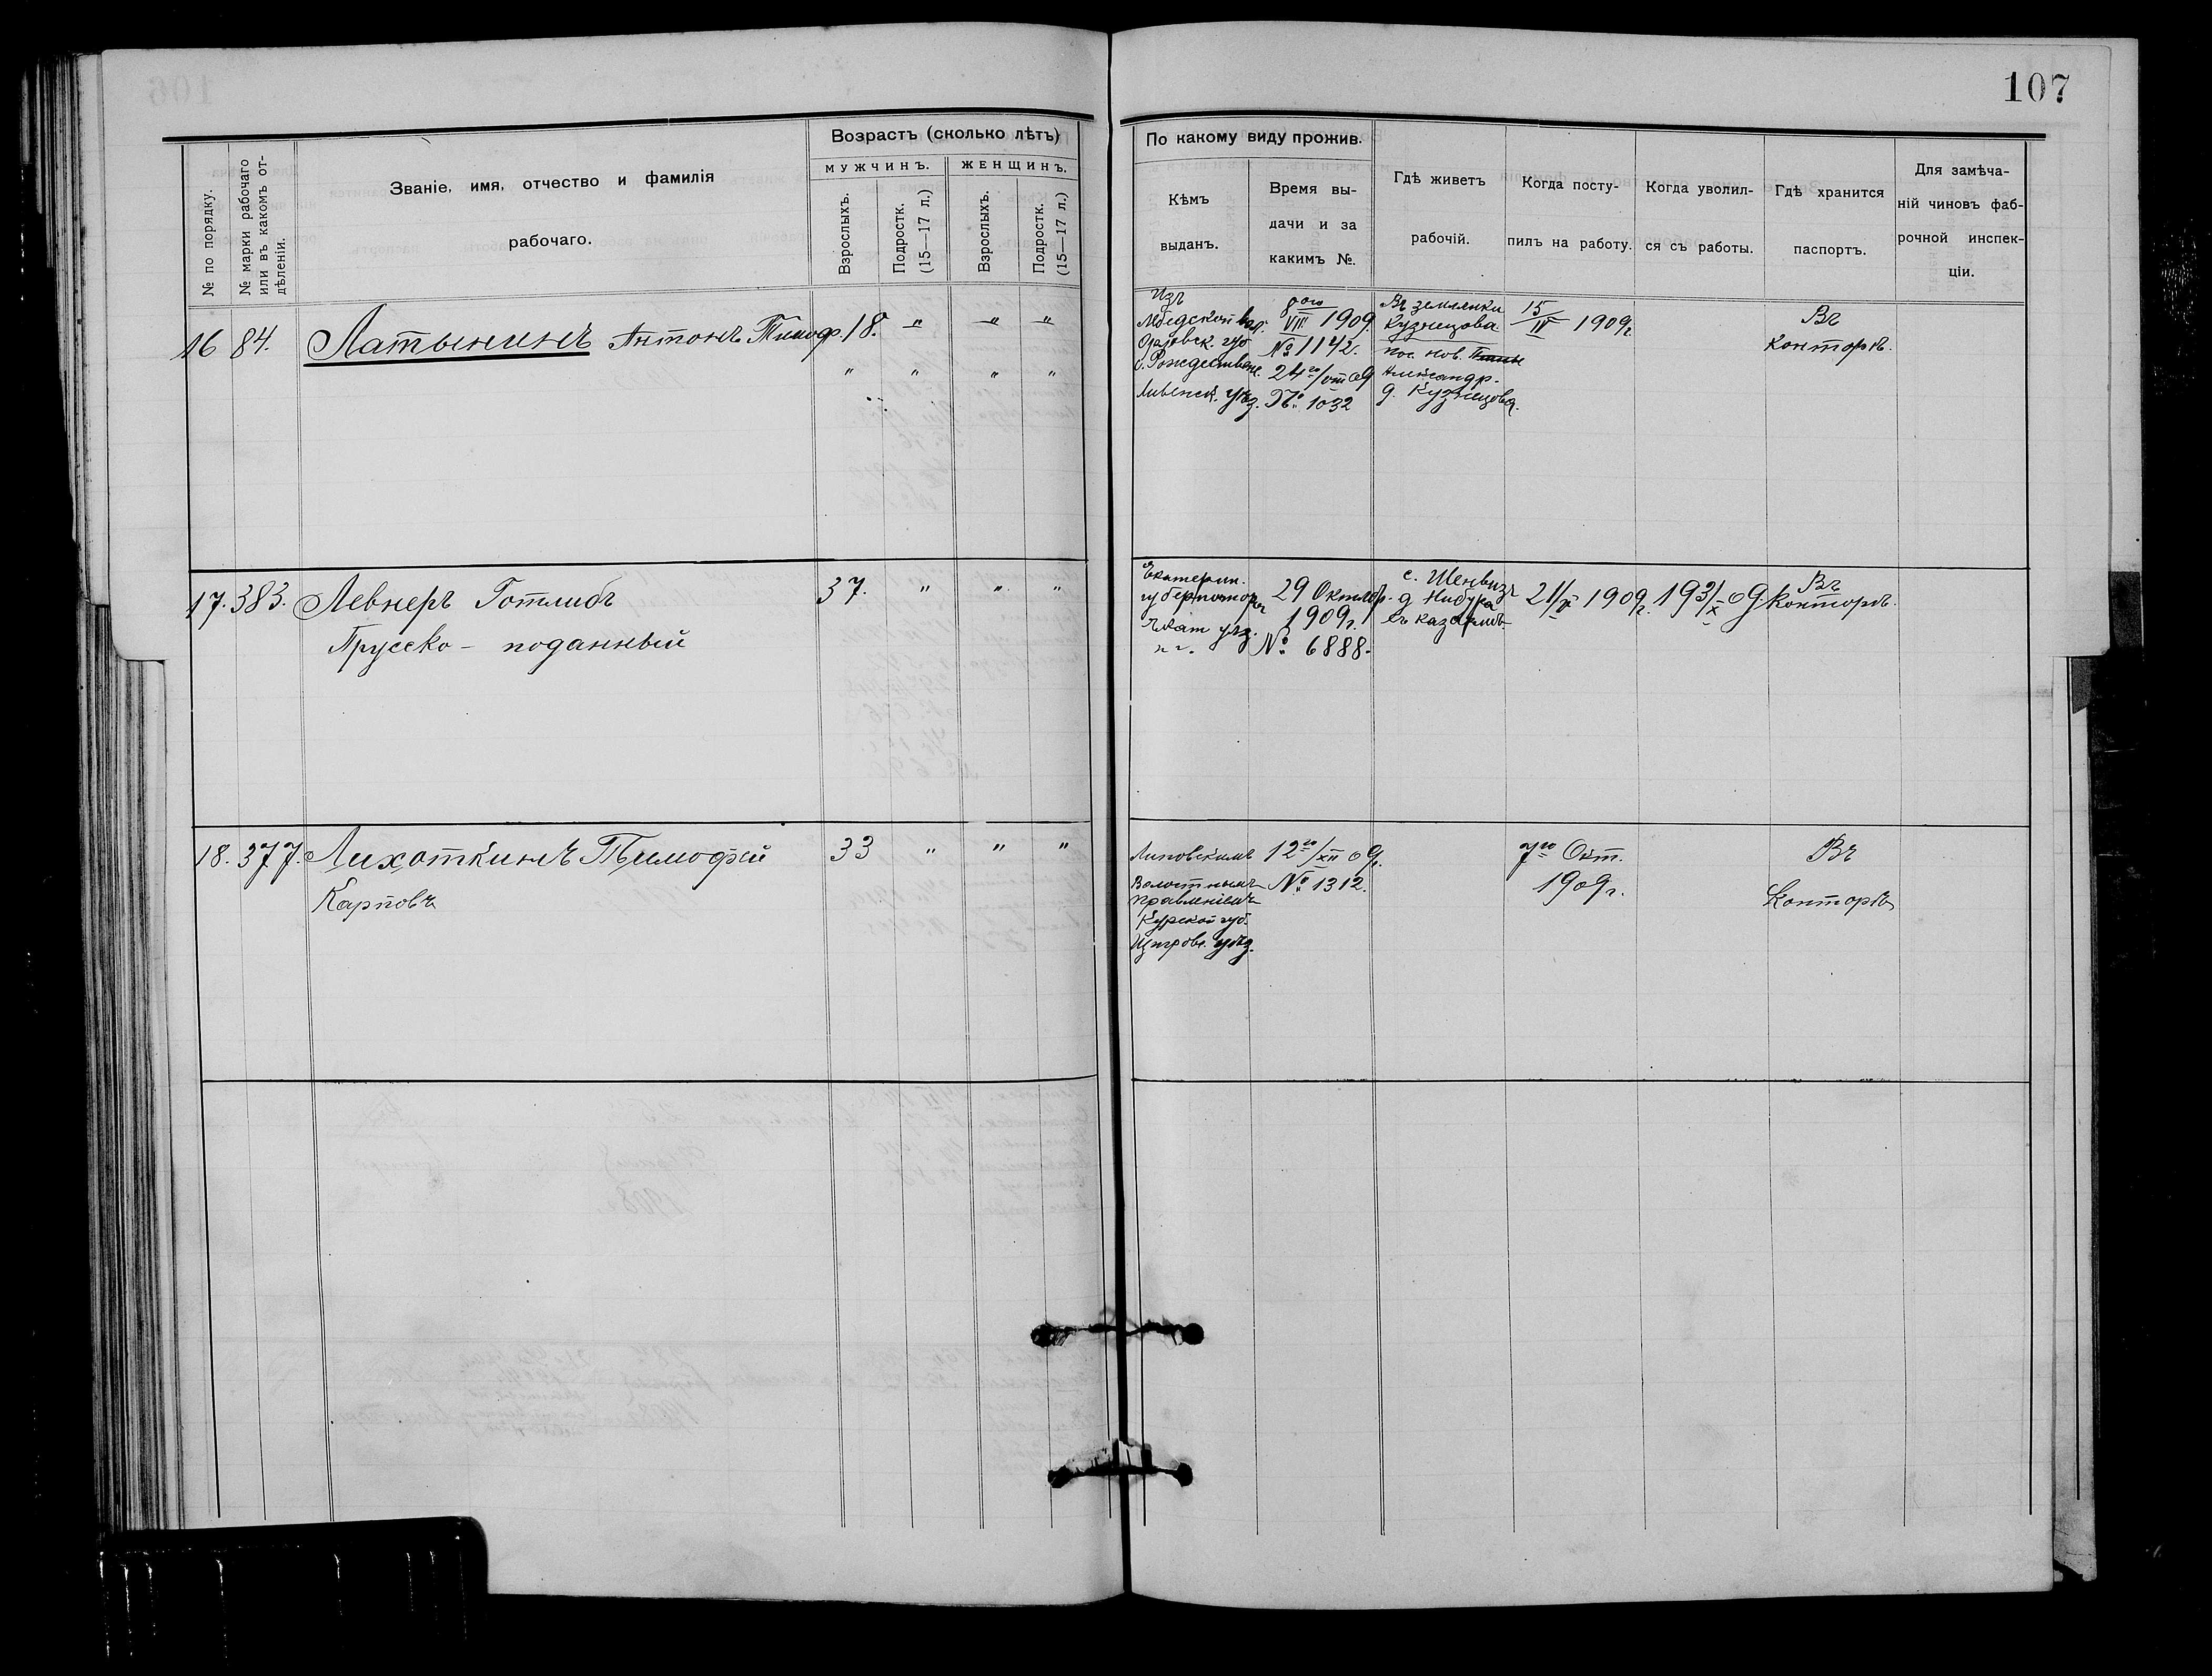 107
№ по порядку.
№ марки рабочаго
или въ какомъ от-
дѣленіи.
Званіе, имя, отчество и фамилія
рабочаго.
Возрастъ (сколько лѣтъ)
мужчинъ.
женщинъ.
Взрослыхъ.
Подростк.
(15—17 л.)
Взрослыхъ.
Подростк.
(15—17 л.)
По какому виду прожив.
Кѣмъ
выданъ.
Время вы-
дачи и за
какимъ №.
Гдѣ живетъ
рабочій.
Когда посту-
пилъ на работу.
Когда уволил-
ся съ работы.
Гдѣ хранится
паспортъ.
Для замѣча-
ній чиновъ фаб-
рочной инспек-
ціи.
16 84. Латынинъ Антонъ Тимоф. 18. " " "
" " " "
Изъ
вол.
Орловск. губ
с. Рождествене.
Ливенск. уѣз.
8ого/VIII 1909
№ 1142.
24го/ 09
№ 1032
Въ землянки
Кузнецова.
пос. нов.
Александр.
д. Кузнецова.
15/IV 1909г.
Въ
конторѣ.
17. 383. Левнеръ Готлибъ 37. " " "
Прусско- поданный
Екатерин.
губернаторъ
Екат уѣз.
29 Октября
1909г.
№ 6888.
с. Шенвизъ
д Нибура
въ казармѣ.
21/X 1909г.
1931/X 09
Въ
конторѣ.
18. 377. Лихоткинъ Тимофей 33 " " "
Карповъ
Липовскимъ
Волостнымъ
Правленіемъ
Курской губ.
Щигров. уѣз.
12го/XII 09г.
№ 1312.
7го Окт.
1909г.
Въ
Конторѣ